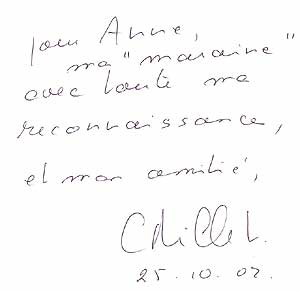 pour Anne,
ma "marraine"
avec toute ma
reconnaissance,
et mon amitié,
25.10.02.